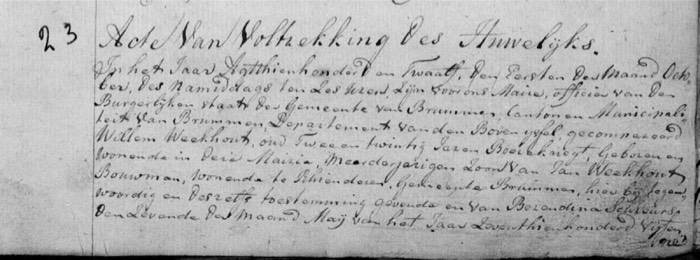 23 Acte Van Voltrekking des Huwelijks.
In het Jaar Agtthienhonderd en Twaalf, den Eersten des Maand Octo-
ber, des Namiddags ten Les Uren, Zijn voor ons Maire, officier van den
Burgerlijken staat der Gemeente van Brummen, Canton en Municipali-
teit van Brummen, Departement van den Boven yssel gecompareerd
Willem Weekhout, oud Twee en twintig Jaren Boereknegt, Geboren en
wonende in deze Mairie, Meerderjarigen Zoon van Jan Weekhout
Bouwman, wonende te Rhienderen, Gemeente Brummen, hier bij tegen-
woordig en deszelfs toestemming gevende en van Berendina Scheurs
den Zevende der Maand Meij van het Jaar Zeventhienhonderd Vijfen